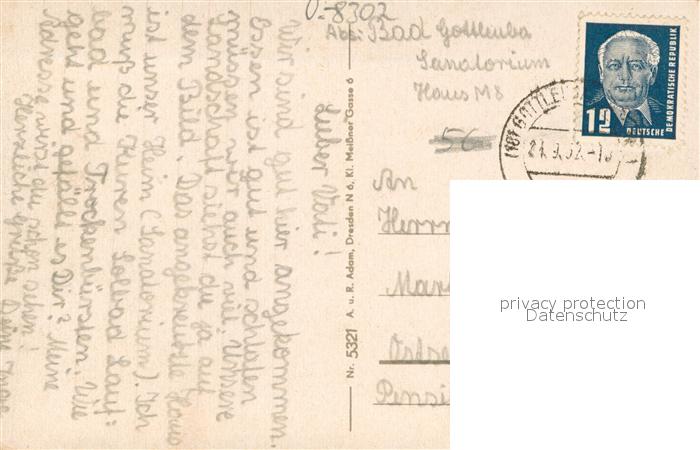 0-8302
Abs: Bad Gottleuba
Sanatorium
Haus M8
56
12
DEUTSCHE
DEMOKRATISCHE REPUBLIK
21.9.52.-1
An
Herrn
Mar
Ostse
Pensi
privacy protection
Datenschutz
Nr. 5321 A. u. R. Adam, Dresden N 6, Kl. Meißner Gasse 6
Lieber Vati!
Wir sind gut hier angekommen.
Essen ist gut und schlafen
müssen wir auch viel. Unsere
Landschaft siehst du ja auf
dem Bild. Das angekreuzte Haus
ist unser Heim (Sanatorium). Ich
muß die Kuren Solbad Luft:
bad und Trockenbürsten. Wie
geht und gefällt es Dir? Meine
Adresse wirst du schon sehen!
Herzliche Grüße Deine